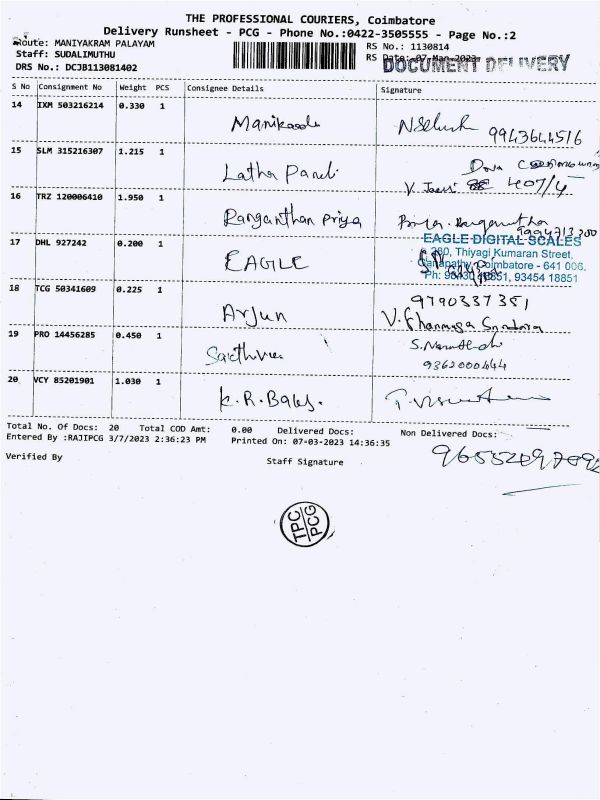 THE PROFESSIONAL COURIERS, Coimbatore
Delivery Runsheet - PCG - Phone No.:0422-3505555 - Page No.:2
Route: MANIYAKRAM PALAYAM
RS No.: 1130814
Staff: SUDALIMUTHU
RS Date: 07-Mar-2023
DOCUMENT DELIVERY
DRS No.: DCJB113081402
S No Consignment No Weight PCS Consignee Details Signature
14 IXM 503216214 0.330 1
9943644516
15 SLM 315216307 1.215 1 Latha
407/4
16 TRZ 120006410 1.950 1 Ranganthan Priya
17 DHL 927242 0.200 1 EAGLE
EAGLE DIGITAL SCALES
Thiyagi Kumaran Street,
Ganapathy, Coimbatore - 641 006.
93454 18851
18 TCG 50341609 0.225 1 Arjun
9790337351
19 PRO 14456285 0.450 1
9362000444
20 VCY 85201901 1.030 1 K.R.
Total No. Of Docs: 20 Total COD Amt: 0.00 Delivered Docs: Non Delivered Docs:
Entered By :RAJIPCG 3/7/2023 2:36:23 PM Printed On: 07-03-2023 14:36:35
Verified By Staff Signature
TPC
PCG